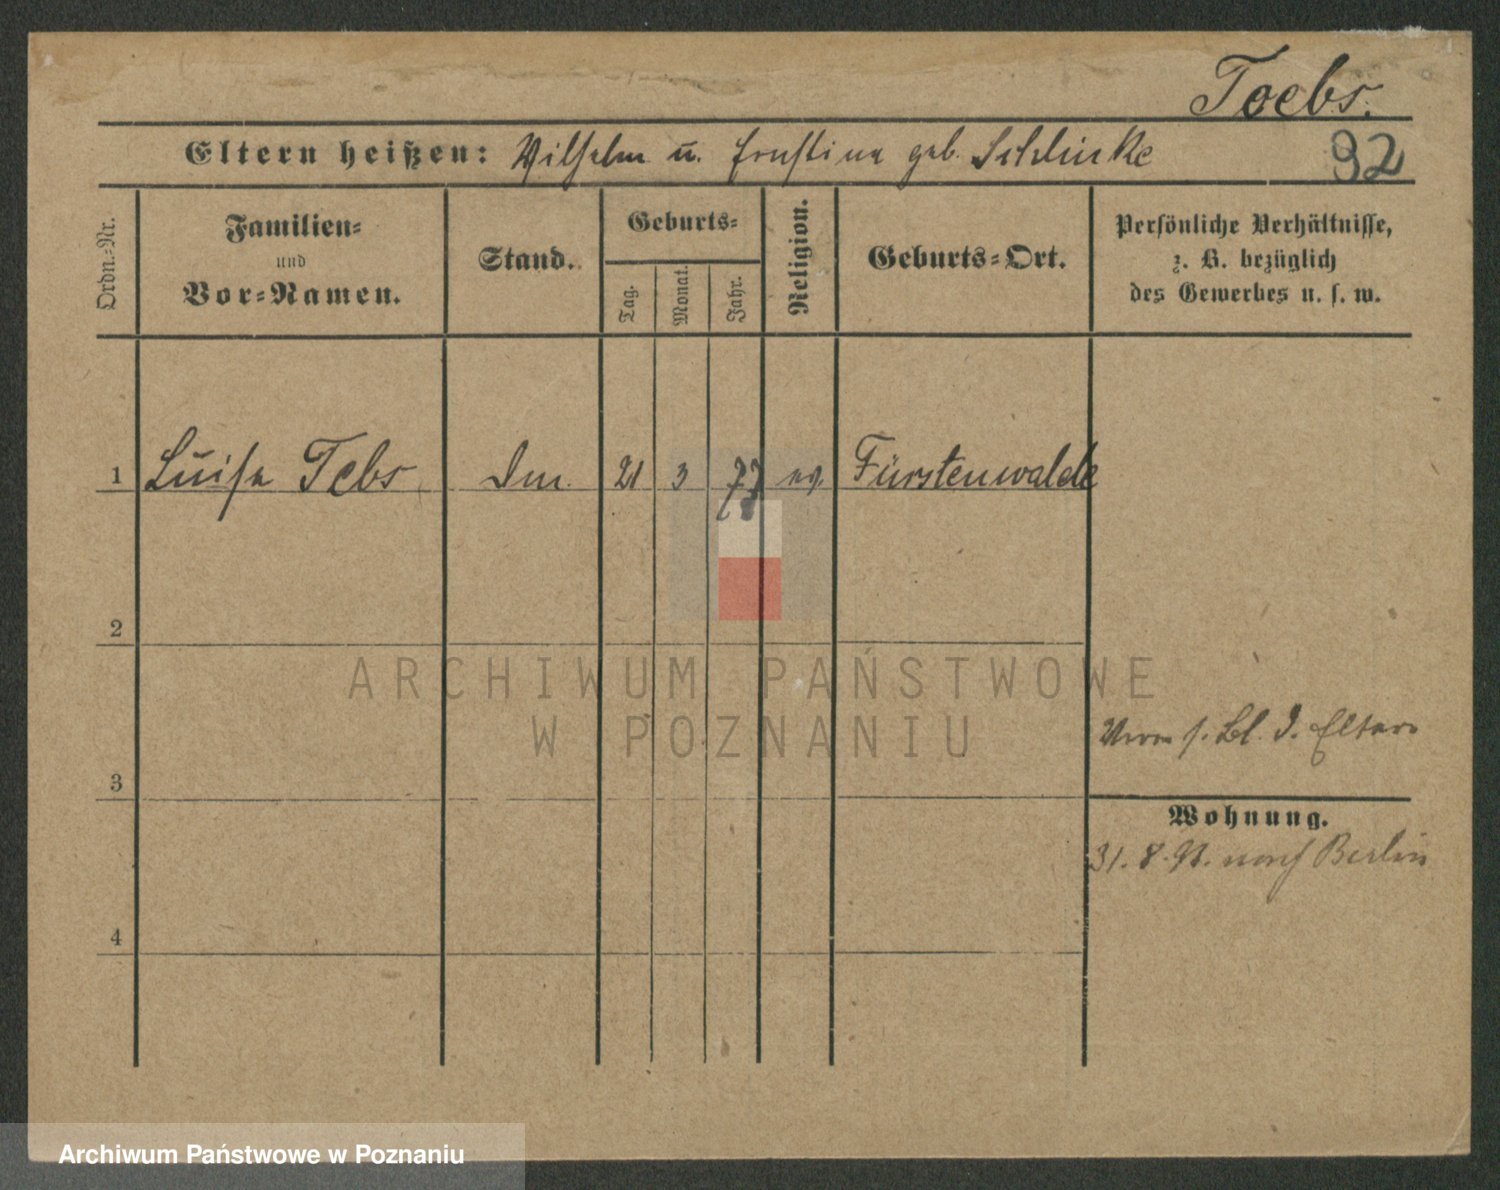 Toebs.
Eltern heißen: Wilhelm u. Ernstine geb. Schlinke
92
Ordn.-Nr.
Familien-
und
Vor-Namen.
Stand.
Geburts-
Tag.
Monat.
Jahr.
Religion.
Geburts-Ort.
Persönliche Verhältnisse,
z. B. bezüglich
des Gewerbes u. s. w.
1 Luise Tebs 21 3 77 ev. Fürstenwalde
2
ARCHIWUM PAŃSTWOWE
W POZNANIU
s. Bl. d. Eltern
3
Wohnung.
31. 8. 91. nach Berlin
4
Archiwum Państwowe w Poznaniu